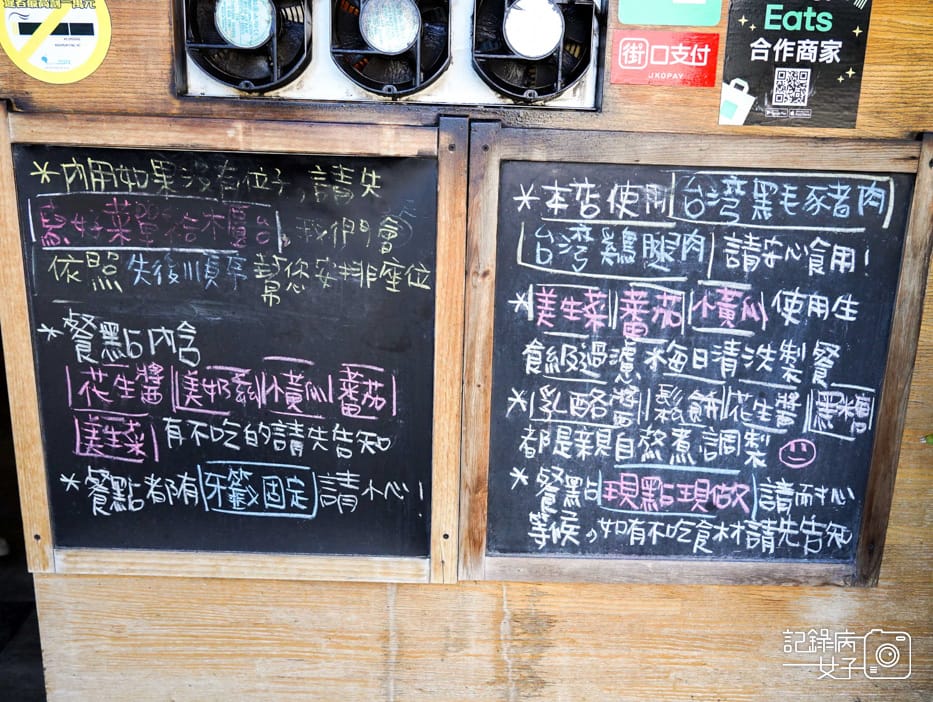 Eats
合作商家
街口支付
JKOPAY
*內用如果沒有位子,請先
點好菜單給櫃台,我們會
依照先後順序幫您安排座位
*餐點內含
花生醬 美奶滋 小黃瓜 蕃茄
美生菜 有不吃的請先告知
*餐點都有牙籤固定請小心!
*本店使用台灣黑毛豬肉
台灣雞腿肉 請安心食用!
*美生菜 蕃茄 小黃瓜 使用生
食級過濾水每日清洗製餐
*乳酪醬 鬆餅 花生醬 黑糖
都是親自熬煮調製
*餐點現點現做 請耐心
等候,如有不吃食材請先告知
記錄病
女子